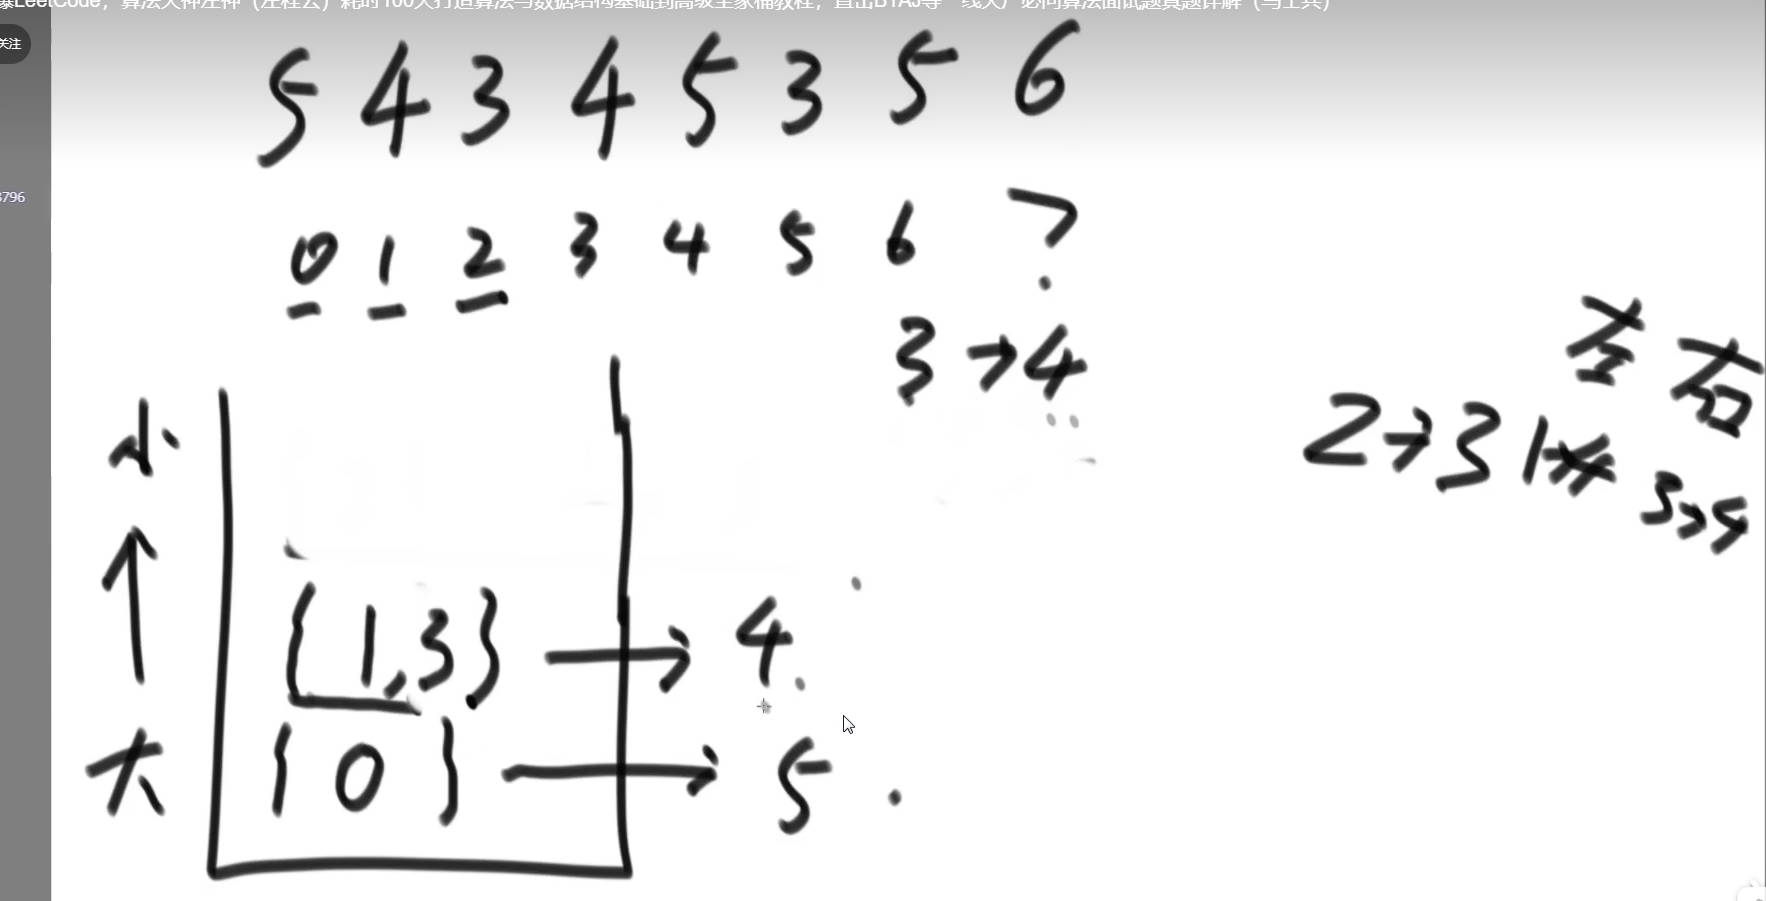 爆LeetCode，算法大神左神（左程云）耗时100天打造算法与数据结构基础到高级全家桶教程，直击BTAJ等一线大厂必问算法面试题真题详解（马士兵）
关注
5 4 3 4 5 3 5 6
3796
0 1 2 3 4 5 6 7
3→4
左 右
2→3 1
3→4
小
{1,3} → 4
大 {0} → 5